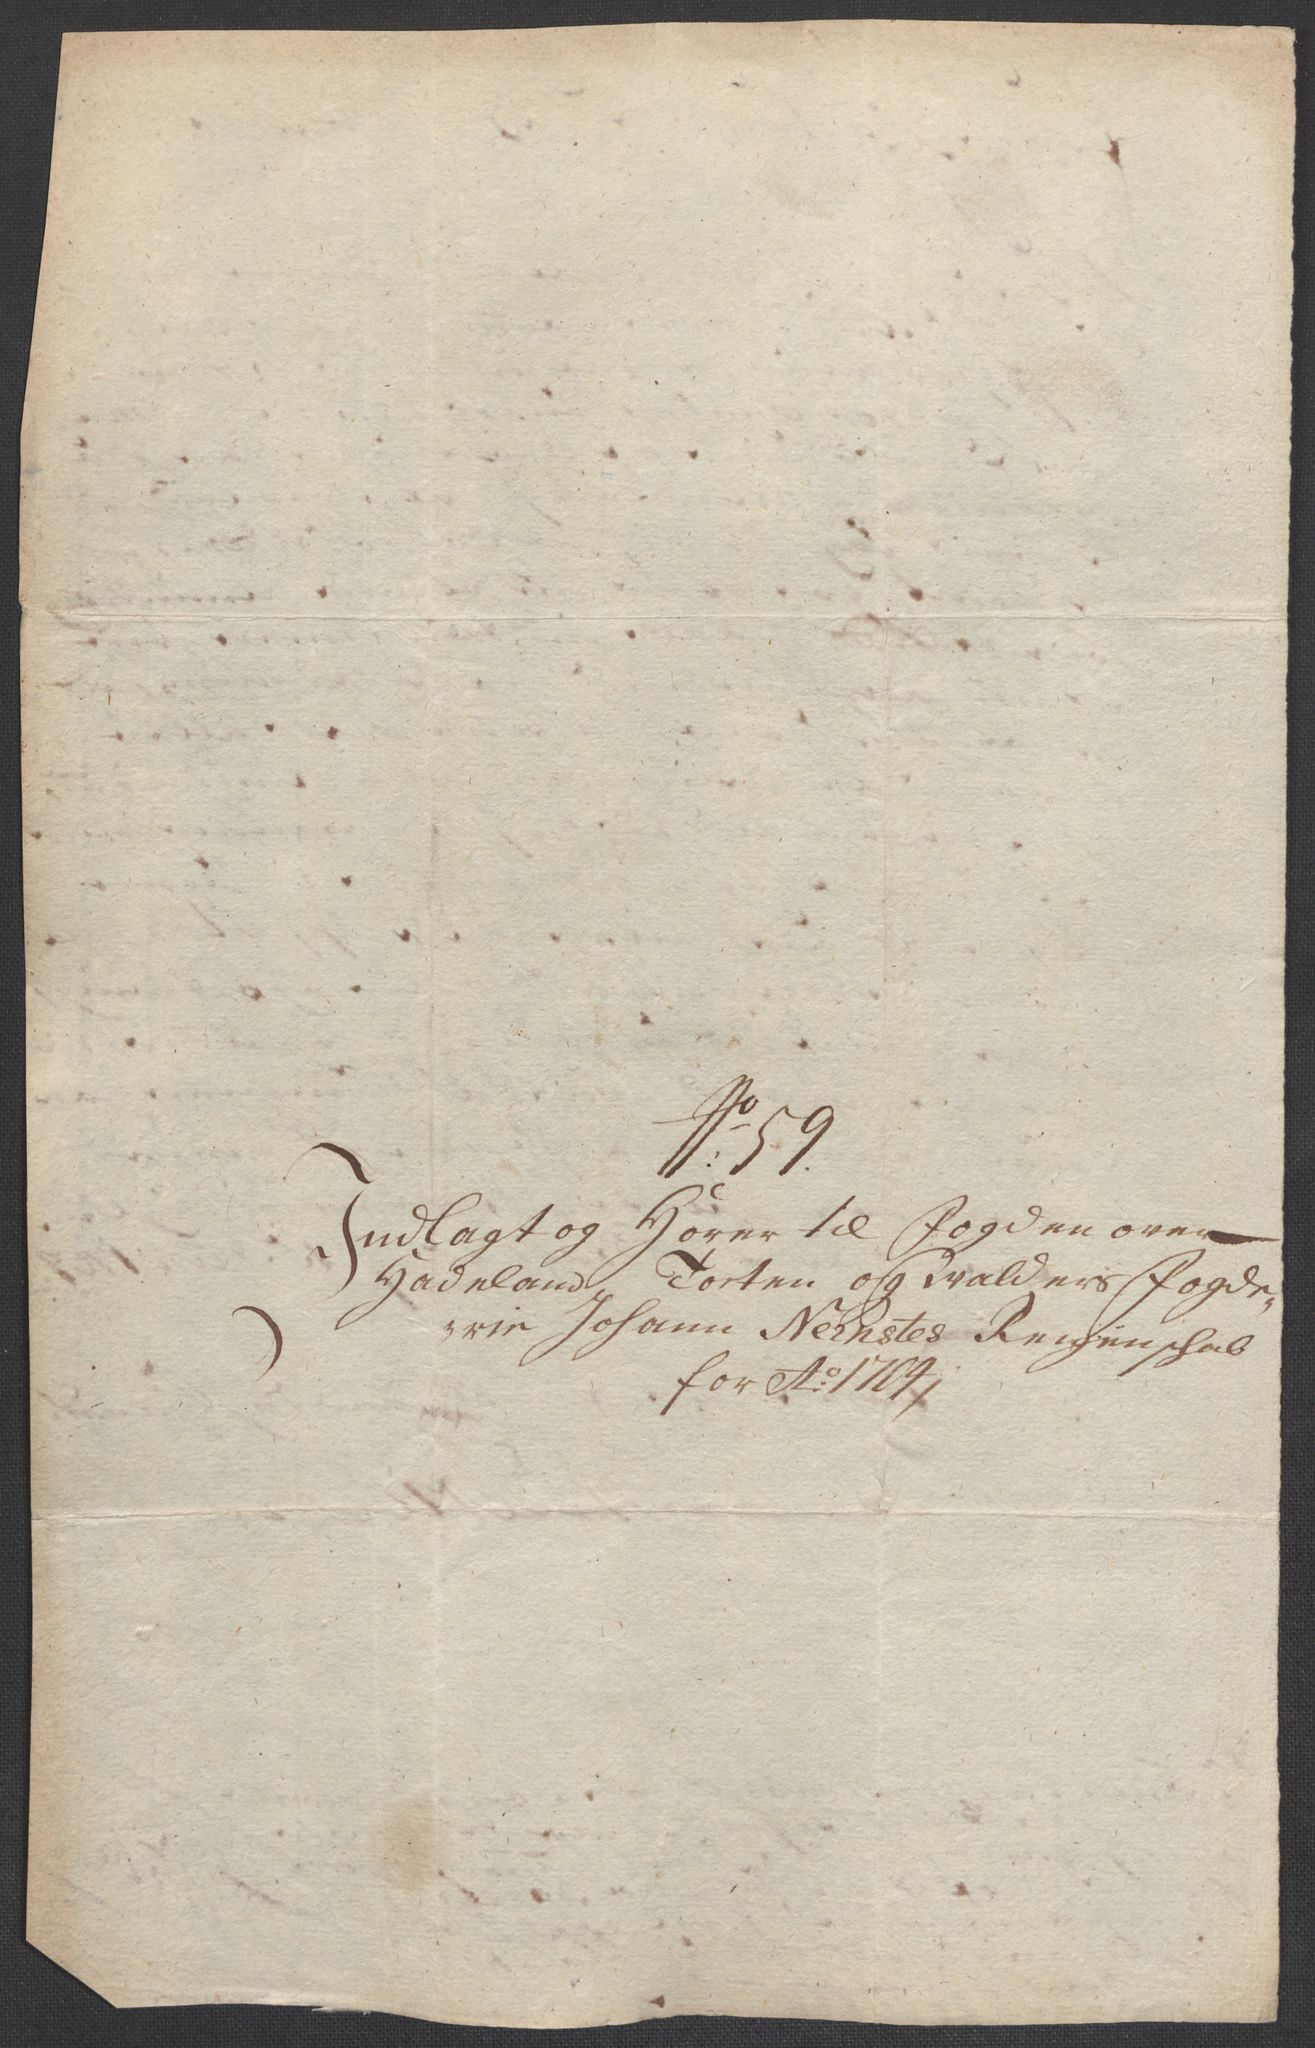 No: 59.
Indlagt og Hörer til Fogden over
Hadeland Toten og Walders Fogde-
-rie Johann Nernstes Regenschab
for Ao: 1704